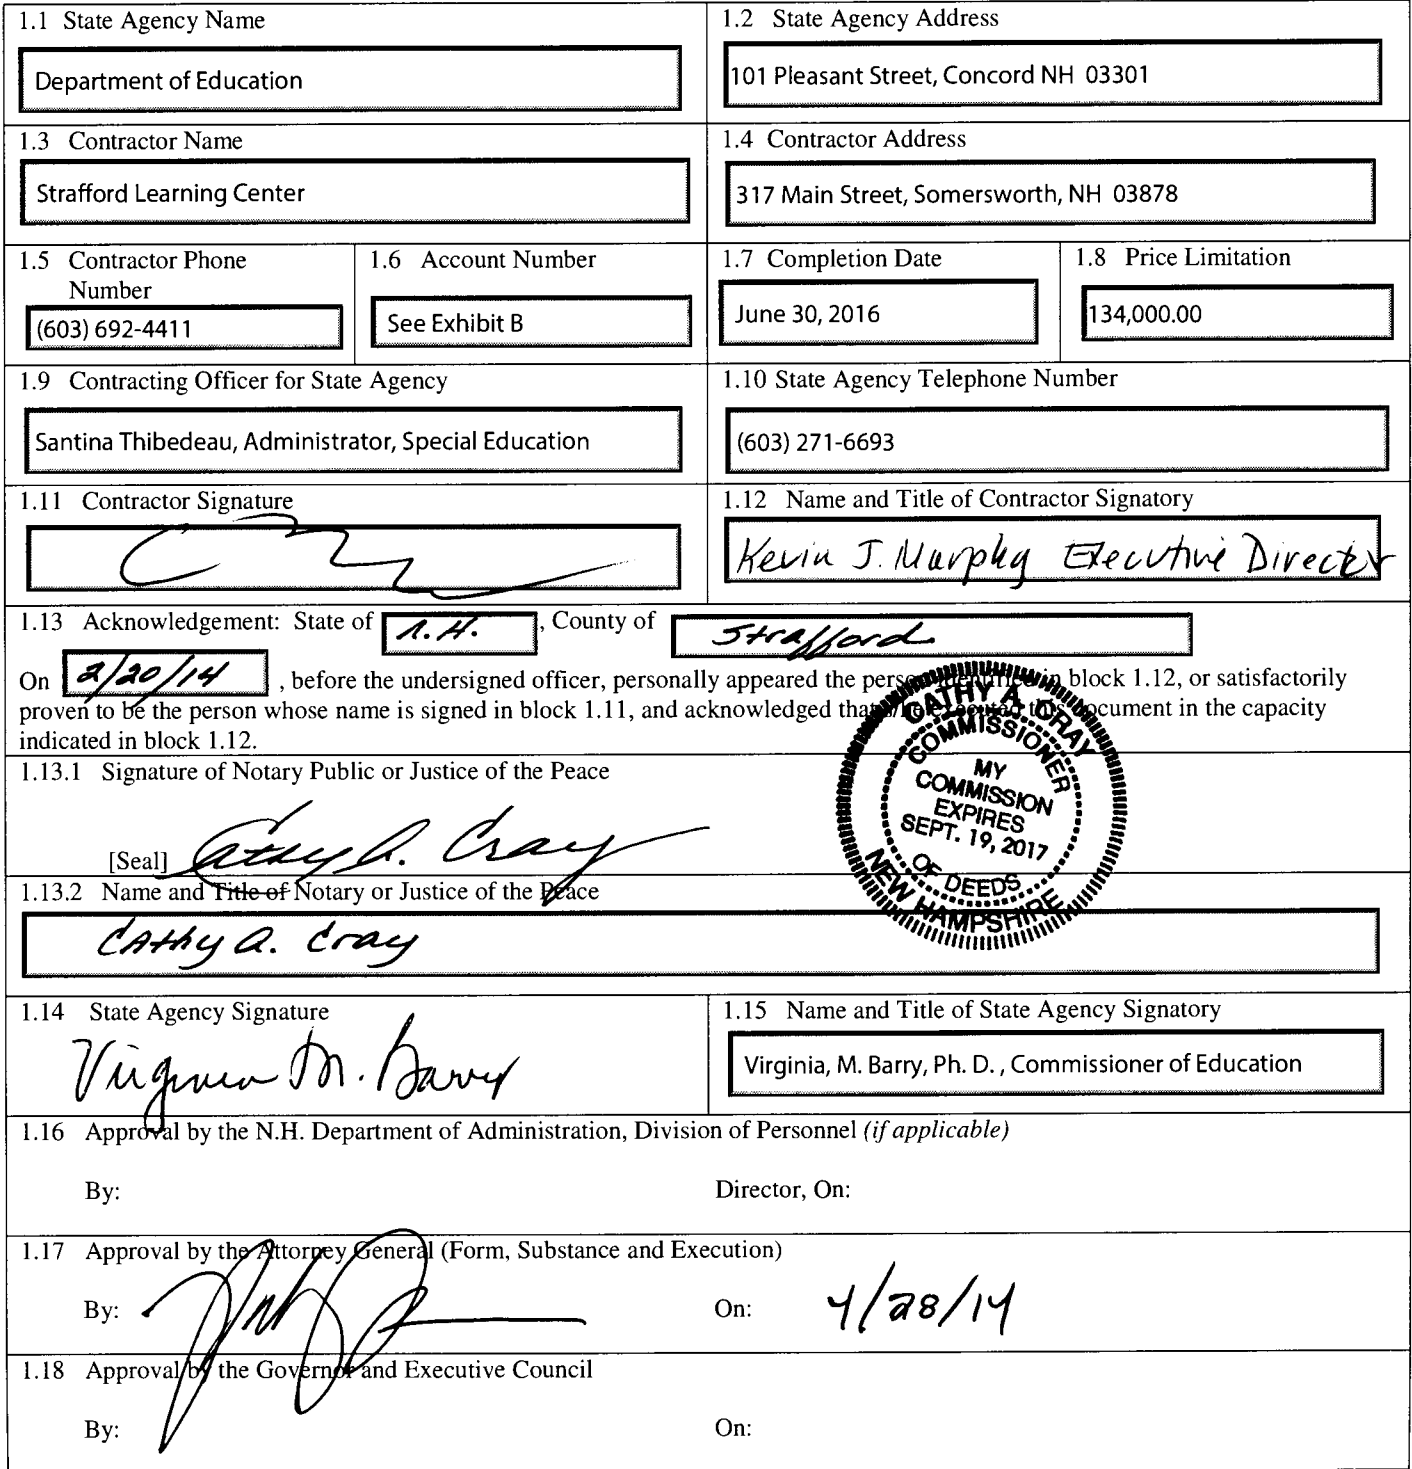 1.1 State Agency Name
Department of Education
1.2 State Agency Address
101 Pleasant Street, Concord NH 03301
1.3 Contractor Name
Strafford Learning Center
1.4 Contractor Address
317 Main Street, Somersworth, NH 03878
1.5 Contractor Phone
Number
(603) 692-4411
1.6 Account Number
See Exhibit B
1.7 Completion Date
June 30, 2016
1.8 Price Limitation
134,000.00
1.9 Contracting Officer for State Agency
Santina Thibedeau, Administrator, Special Education
1.10 State Agency Telephone Number
(603) 271-6693
1.11 Contractor Signature
1.12 Name and Title of Contractor Signatory
Kevin J. Murphy Executive Director
1.13 Acknowledgement: State of N.H., County of Strafford
On 2/20/14, before the undersigned officer, personally appeared the person identified in block 1.12, or satisfactorily
proven to be the person whose name is signed in block 1.11, and acknowledged that s/he executed this document in the capacity
indicated in block 1.12.
CATHY A. CRAY
COMMISSIONER
MY
COMMISSION
EXPIRES
SEPT. 19, 2017
OF DEEDS
NEW HAMPSHIRE
1.13.1 Signature of Notary Public or Justice of the Peace
[Seal] Cathy A. Cray
1.13.2 Name and Title of Notary or Justice of the Peace
Cathy A. Cray
1.14 State Agency Signature
Virginia M. Barry
1.15 Name and Title of State Agency Signatory
Virginia, M. Barry, Ph. D. , Commissioner of Education
1.16 Approval by the N.H. Department of Administration, Division of Personnel (if applicable)
By: Director, On:
1.17 Approval by the Attorney General (Form, Substance and Execution)
By: On: 4/28/14
1.18 Approval by the Governor and Executive Council
By: On: